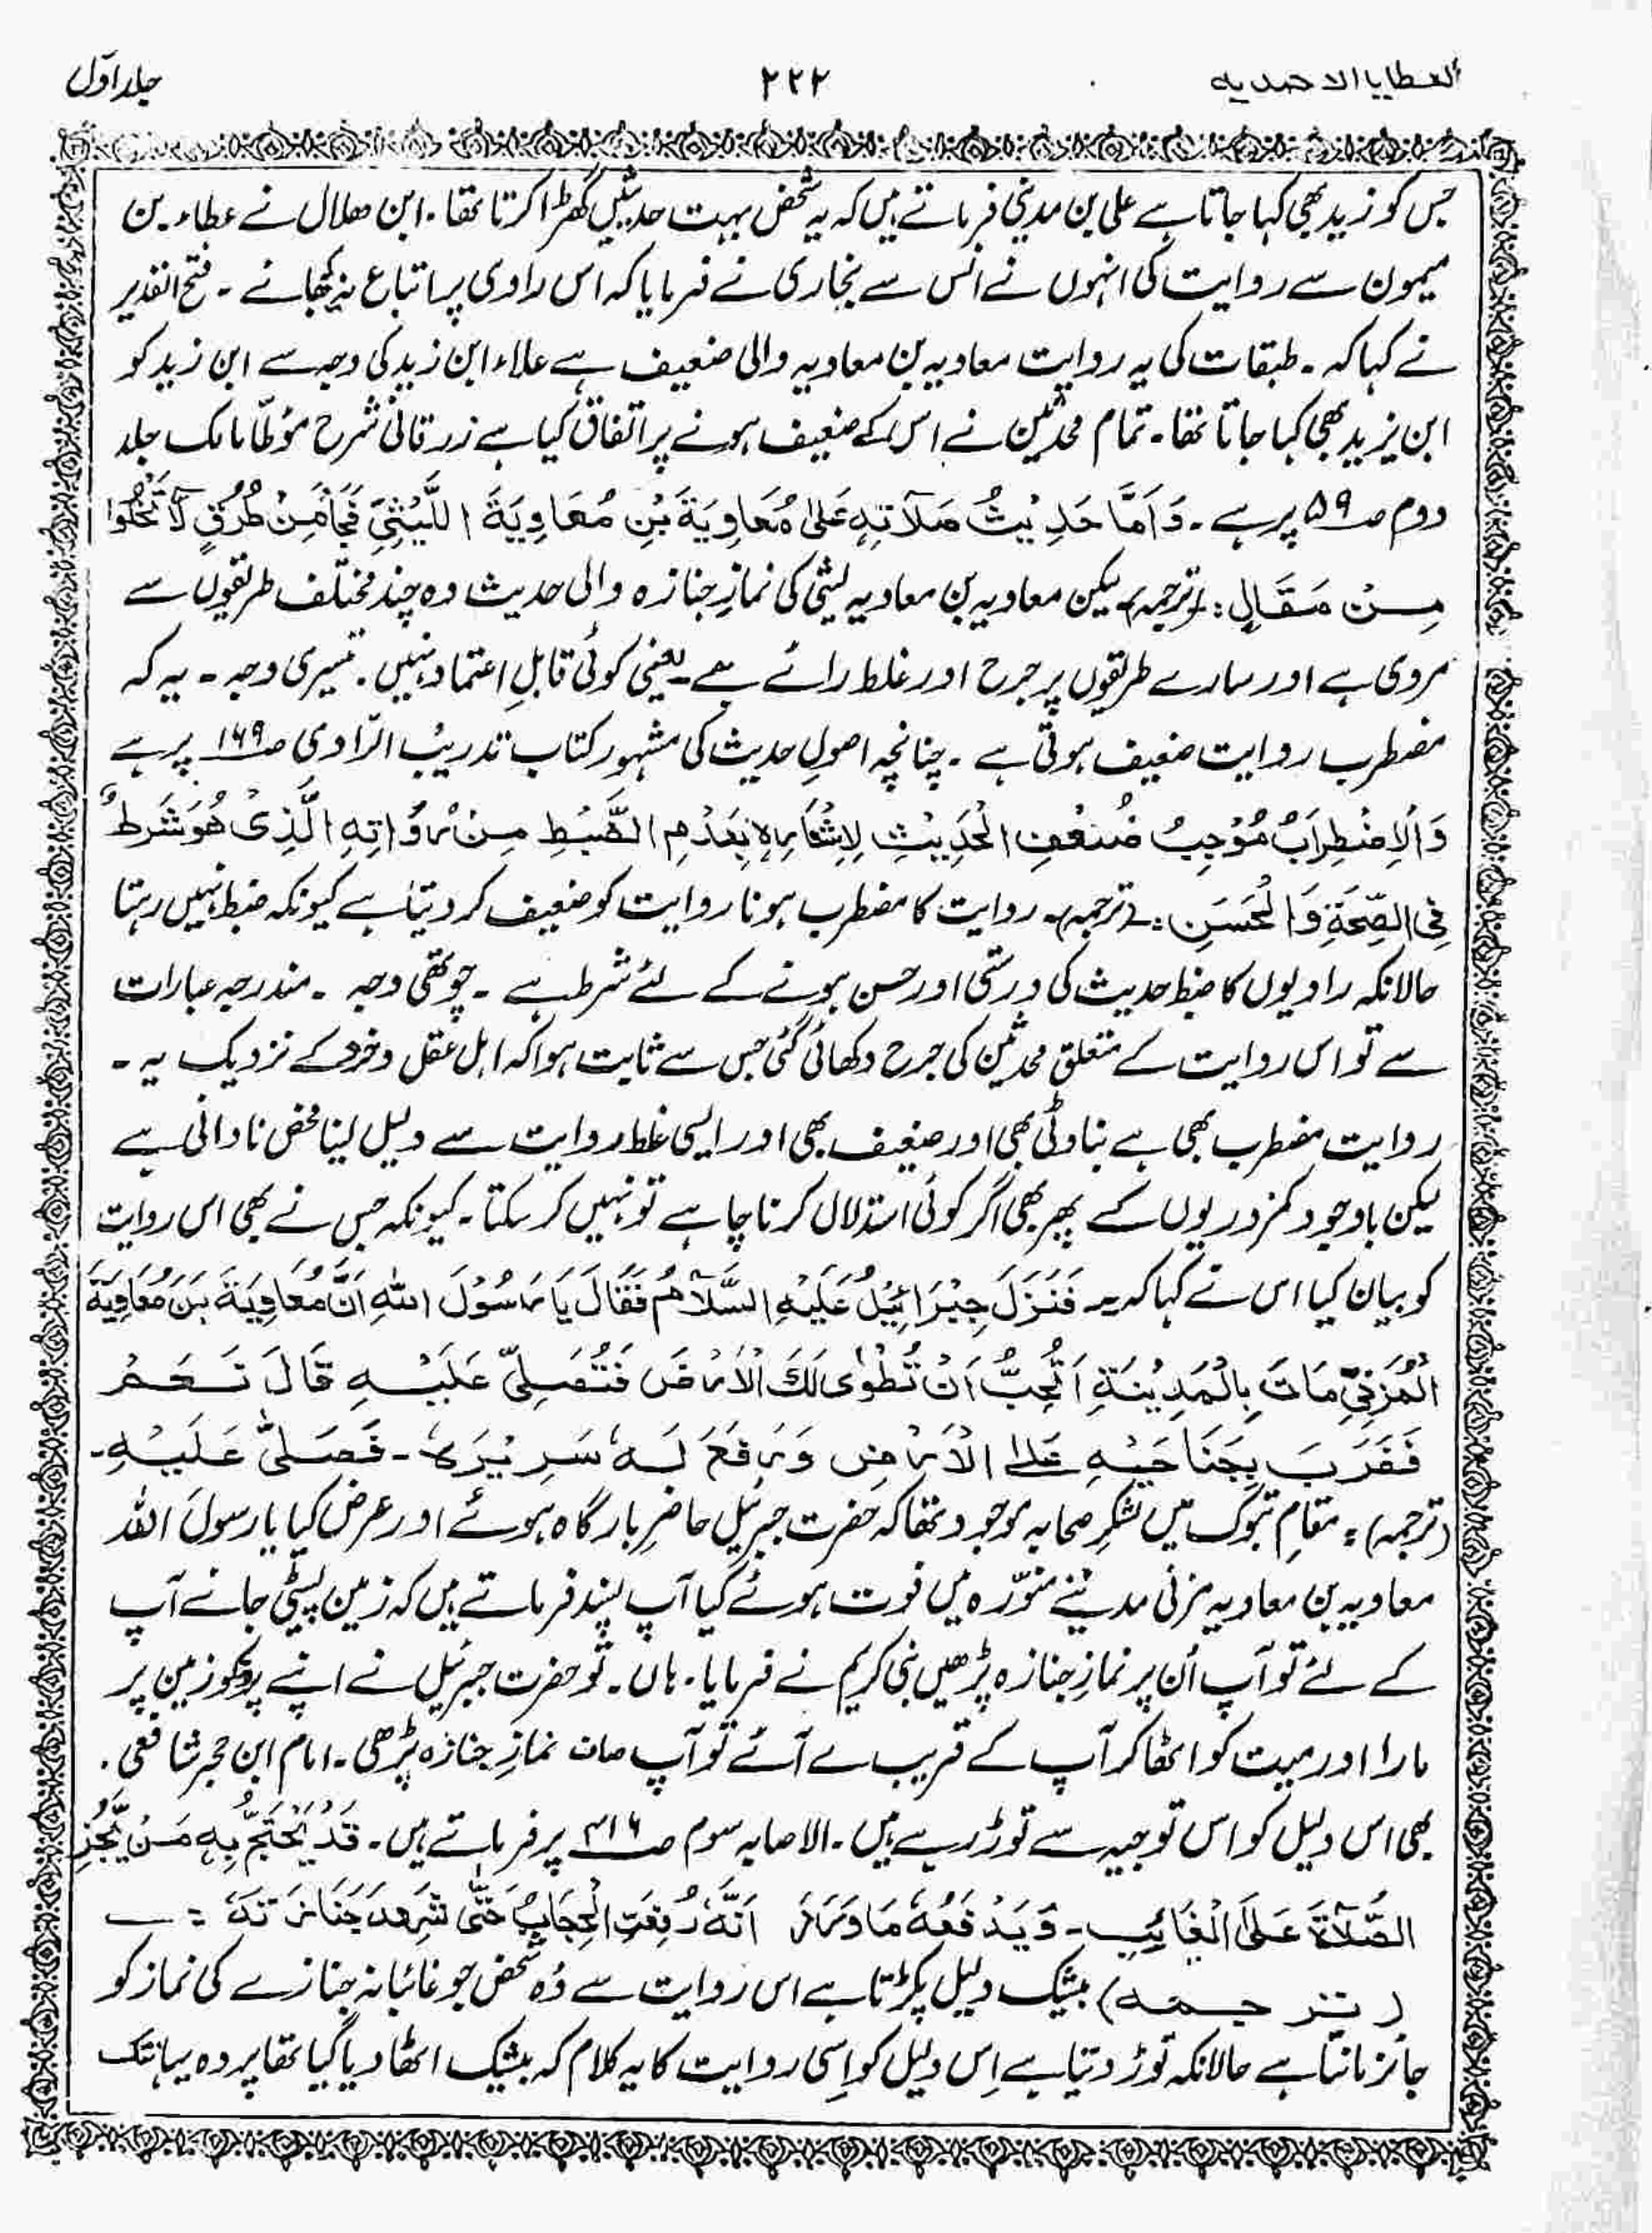 العطایا الاحمدیه
۲۲۲
جلد اوّل
جس کو زید بھی کہا جاتا ہے علی بن مدینی فرماتے ہیں کہ یہ شخص بہت حدیثیں گھڑا کرتا تھا۔ ابن ھلال نے عطاء بن
میمون سے روایت کی انہوں نے انس سے بخاری نے فرمایا کہ اس راوی پر اتباع نہ کیجائے۔ فتح القدیر
نے کہا کہ۔ طبقات کی یہ روایت معاویہ بن معاویہ والی ضعیف ہے علاء ابن زید کی وجہ سے ابن زید کو
ابن یزید بھی کہا جاتا تھا۔ تمام محدثین نے اس کے ضعیف ہونے پر اتفاق کیا ہے زرقانی شرح مؤطّا مالک جلد
دوم صـ۵۹ پر ہے۔ وَاَمَّا حَدِیْثُ صَلَاتِہٖ عَلٰی مُعَاوِیَۃَ بْنِ مُعَاوِیَۃَ اللَّیْثِیِّ فَجَآءَ مِنْ طُرُقٍ لَا تَخْلُوا
مِنْ مَقَالٍ: (ترجمہ) لیکن معاویہ بن معاویہ لیثی کی نمازِ جنازہ والی حدیث وہ چند مختلف طریقوں سے
مروی ہے اور سارے طریقوں پر جرح اور غلط رائے ہے۔ یعنی کوئی قابلِ اعتماد نہیں۔ تیسری وجہ۔ یہ کہ
مضطرب روایت ضعیف ہوتی ہے۔ چنانچہ اصولِ حدیث کی مشہور کتاب تدریبُ الرّاوی صـ۱۶۹ پر ہے
وَالْاِضْطِرَابُ مُوْجِبُ ضُعْفِ الْحَدِیْثِ لِاِشْعَارِہٖ بِعَدْمِ الضَّبْطِ مِنْ رُوَاتِہِ الَّذِیْ ھُوَ شَرْطٌ
فِی الصِّحَۃِ وَالْحَسَنِ:۔ (ترجمہ)۔ روایت کا مضطرب ہونا روایت کو ضعیف کر دیتا ہے کیونکہ ضبط نہیں رہتا
حالانکہ راویوں کا ضبط حدیث کی درستی اور حسن ہونے کے لئے شرط ہے۔ چوتھی وجہ۔ مندرجہ عبارات
سے تو اس روایت کے متعلق محدثین کی جرح دکھائی گئی جس سے ثابت ہوا کہ اہل عقل و خرد کے نزدیک یہ۔
روایت مضطرب بھی ہے بناوٹی بھی اور ضعیف بھی اور ایسی غلط روایت سے دلیل لینا محض نادانی ہے
لیکن باوجود کمزوریوں کے پھر بھی اگر کوئی استدلال کرنا چاہے تو نہیں کر سکتا۔ کیونکہ جس نے بھی اس روایت
کو بیان کیا اس نے کہا کہ۔ فَنَزَلَ جِبْرَائِیْلُ عَلَیْہِ السَّلَامُ فَقَالَ یَا رَسُوْلَ اللهِ اَنَّ مُعَاوِیَۃَ بْنَ مُعَاوِیَۃَ
الْمُزَنِیِّ مَاتَ بِالْمَدِیْنَۃِ اَتُحِبُّ اَنْ تُطْوٰی لَکَ الْاَرْضَ فَتُصَلِّیْ عَلَیْہِ قَالَ نَعَمْ
فَضَرَبَ بِجَنَاحَیْہِ عَلَی الْاَرْضِ وَرَفَعَ لَہٗ سَرِیْرَہٗ۔ فَصَلّٰی عَلَیْہِ۔
(ترجمہ)؛ مقامِ تبوک میں لشکرِ صحابہ موجود تھا کہ حضرت جبرئیل حاضرِ بارگاہ ہوئے اور عرض کیا یا رسولَ اللہ
معاویہ بن معاویہ مزنی مدینے منوّرہ میں فوت ہوئے کیا آپ پسند فرماتے ہیں کہ زمین لپیٹی جائے آپ
کے لئے تو آپ اُن پر نمازِ جنازہ پڑھیں نبی کریم نے فرمایا۔ ہاں۔ تو حضرت جبرئیل نے اپنے پروںکو زمین پر
مارا اور میت کو اٹھا کر آپ کے قریب لے آئے تو آپ نمازِ جنازہ پڑھی۔ امام ابن حجر شافعی۔
بھی اس دلیل کو اس توجیہ سے توڑ رہے ہیں۔ الاصابہ سوم صـ۴۱۶ پر فرماتے ہیں۔ قَدْ یَحْتَجُّ بِہٖ مَنْ یُّجِزِ
الصَّلَاۃَ عَلَی الْغَائِبِ۔ وَیَدْفَعُہٗ مَا وَرَدَ اَنَّہٗ رُفِعَتِ الْحِجَابُ حَتّٰی شَھِدَ جَنَازَتَہٗ =۔
(ترجمہ) بیشک دلیل پکڑتا ہے اس روایت سے وُہ شخص جو غائبانہ جنازے کی نماز کو
جائز مانتا ہے حالانکہ توڑ دیتا ہے اِس دلیل کو اِسی روایت کا یہ کلام کہ بیشک اٹھا دیا گیا تھا پردہ یہانتک